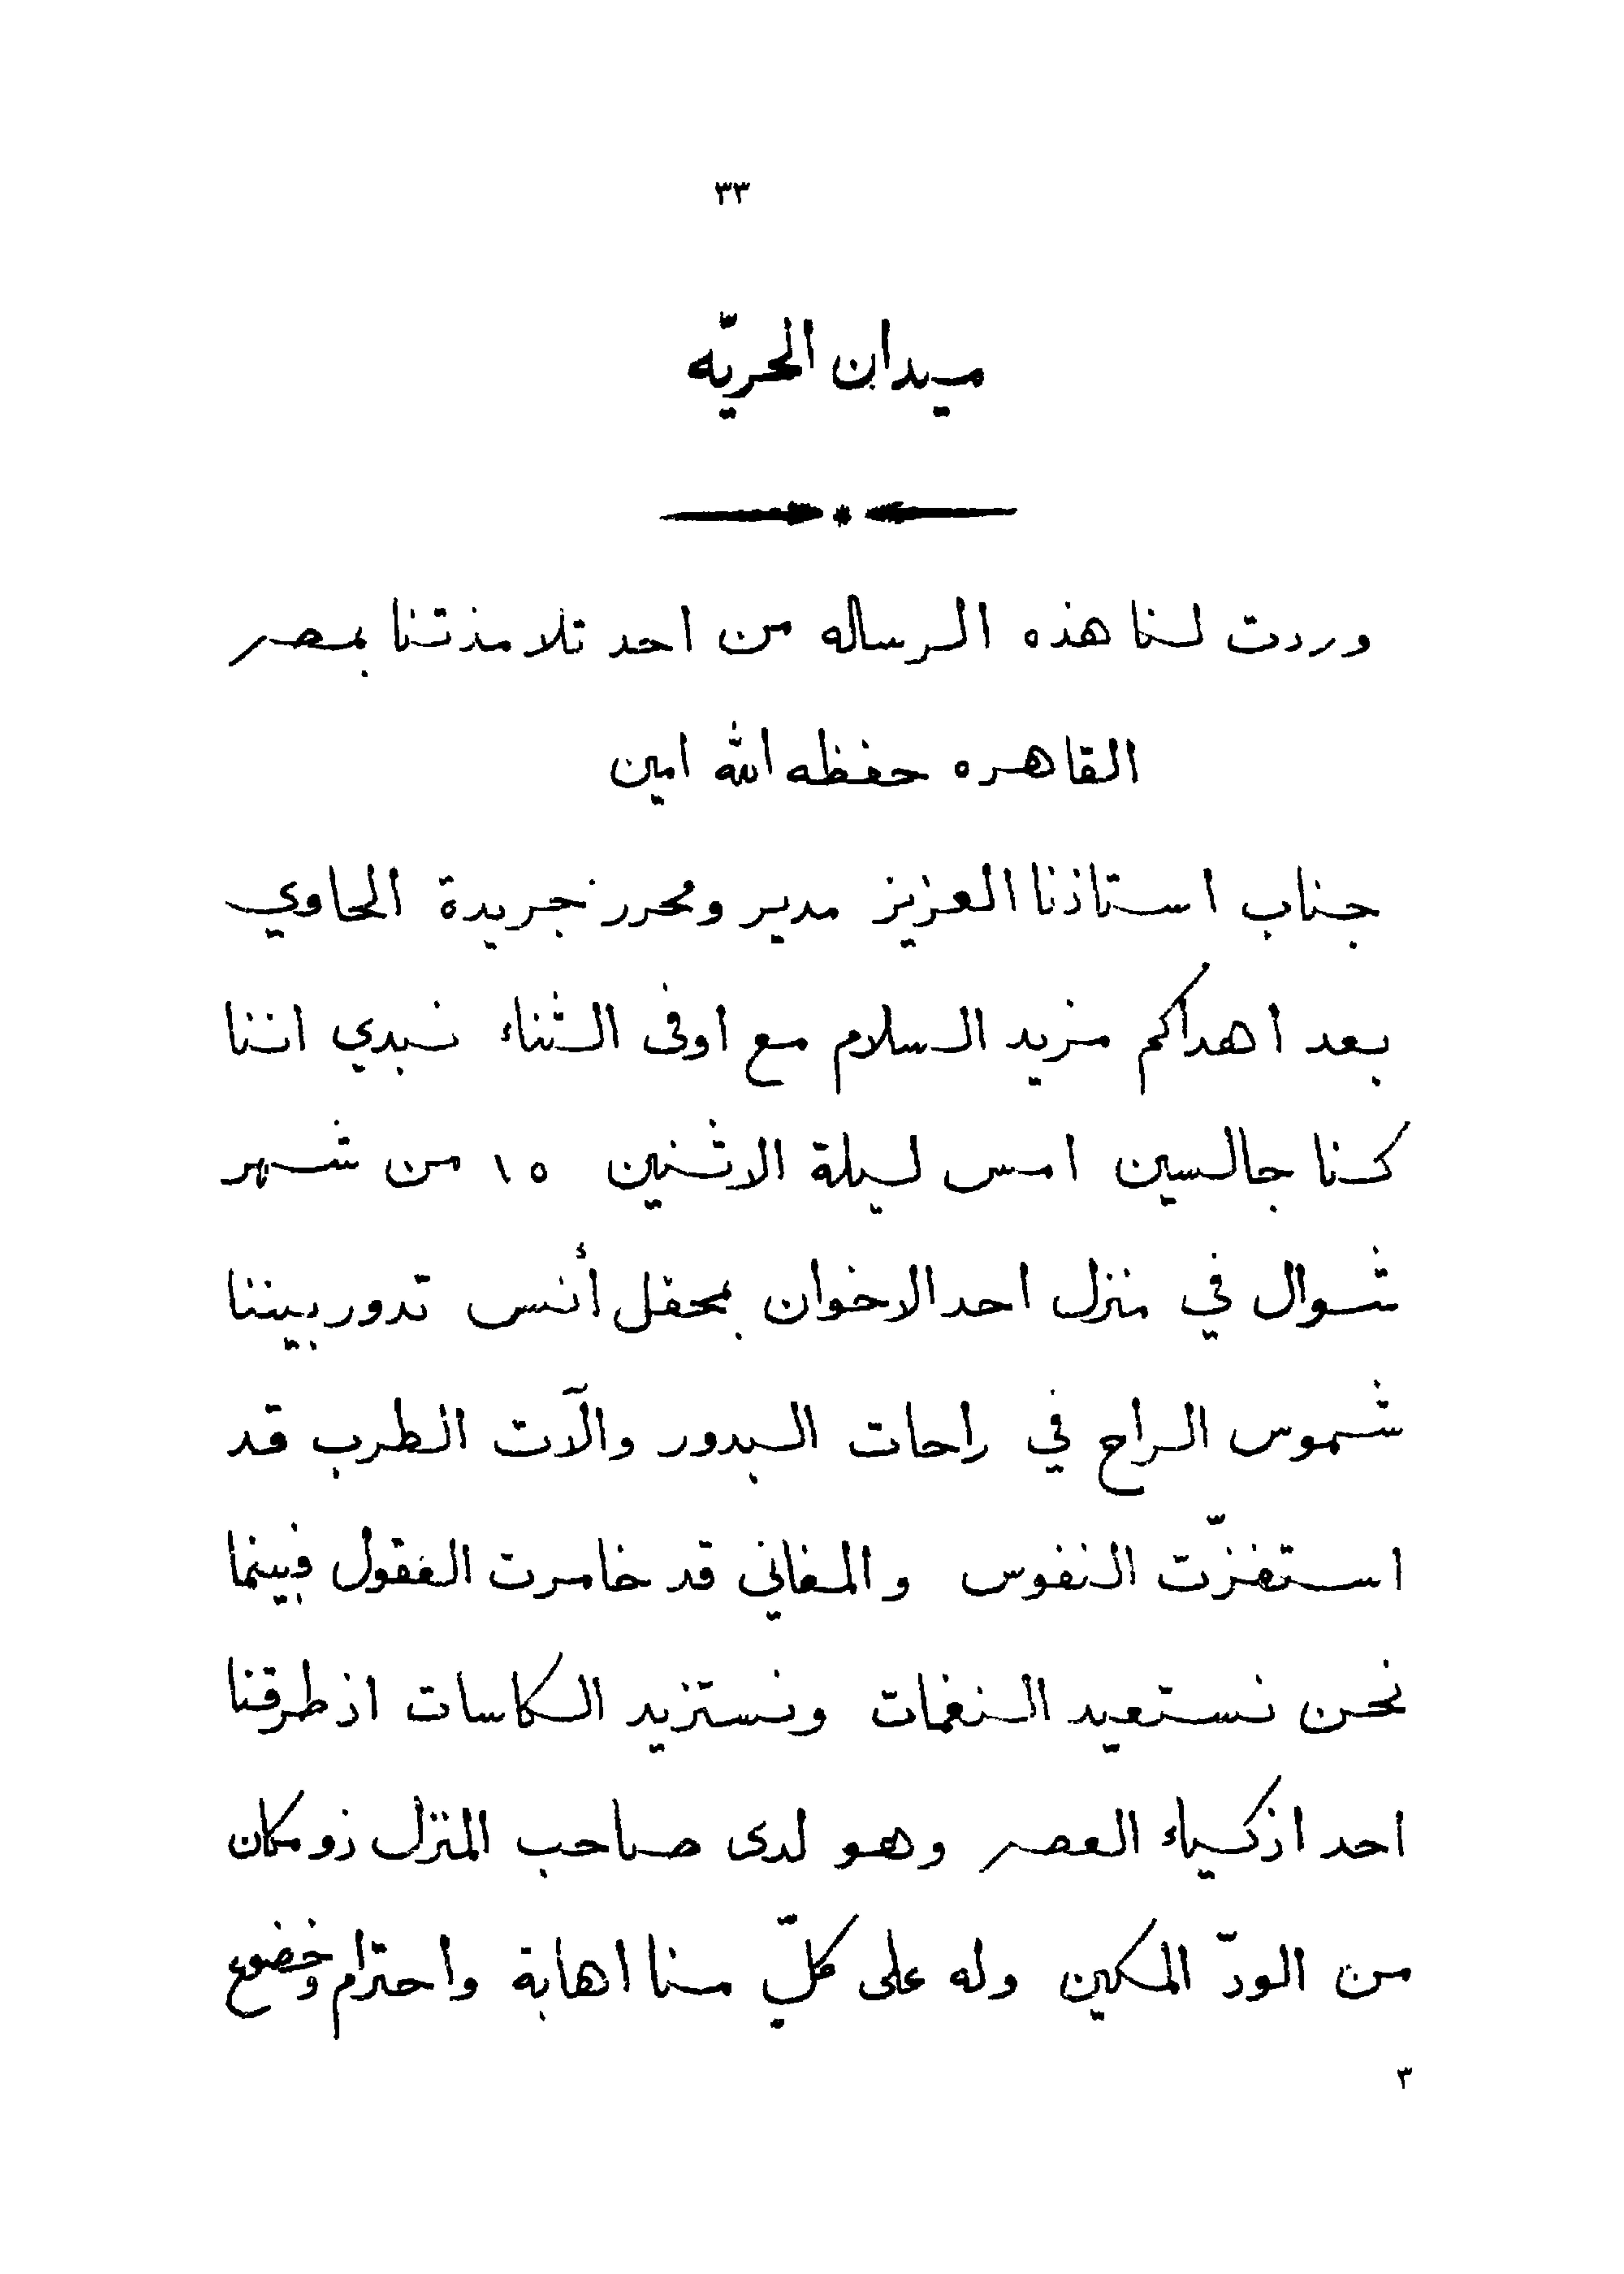 ٣٣
ميدان الحريّه
وردت لنا هذه الرساله من احد تلامذتنا بمصر
القاهره حفظه الله امين
جناب استاذنا العزيز مدير ومحرر جريدة الحاوي
بعد اهداكم مزيد السلام مع اوفى الثناء نبدي اننا
كنا جالسين امس ليلة الاثنين ١٥ من شهر
شوال في منزل احد الاخوان بمحفل أنس تدور بيننا
شموس الراح في راحات البدور والآت الطرب قد
استفزّت النفوس والمغاني قد خامرت العقول فبينما
نحن نستعيد النغمات ونستزيد الكاسات اذ طرقنا
احد اذكياء العصر وهو لدى صاحب المنزل ذو مكان
من الودّ المكين وله على كلّ منا اهابة واحترام وخضوع
٣